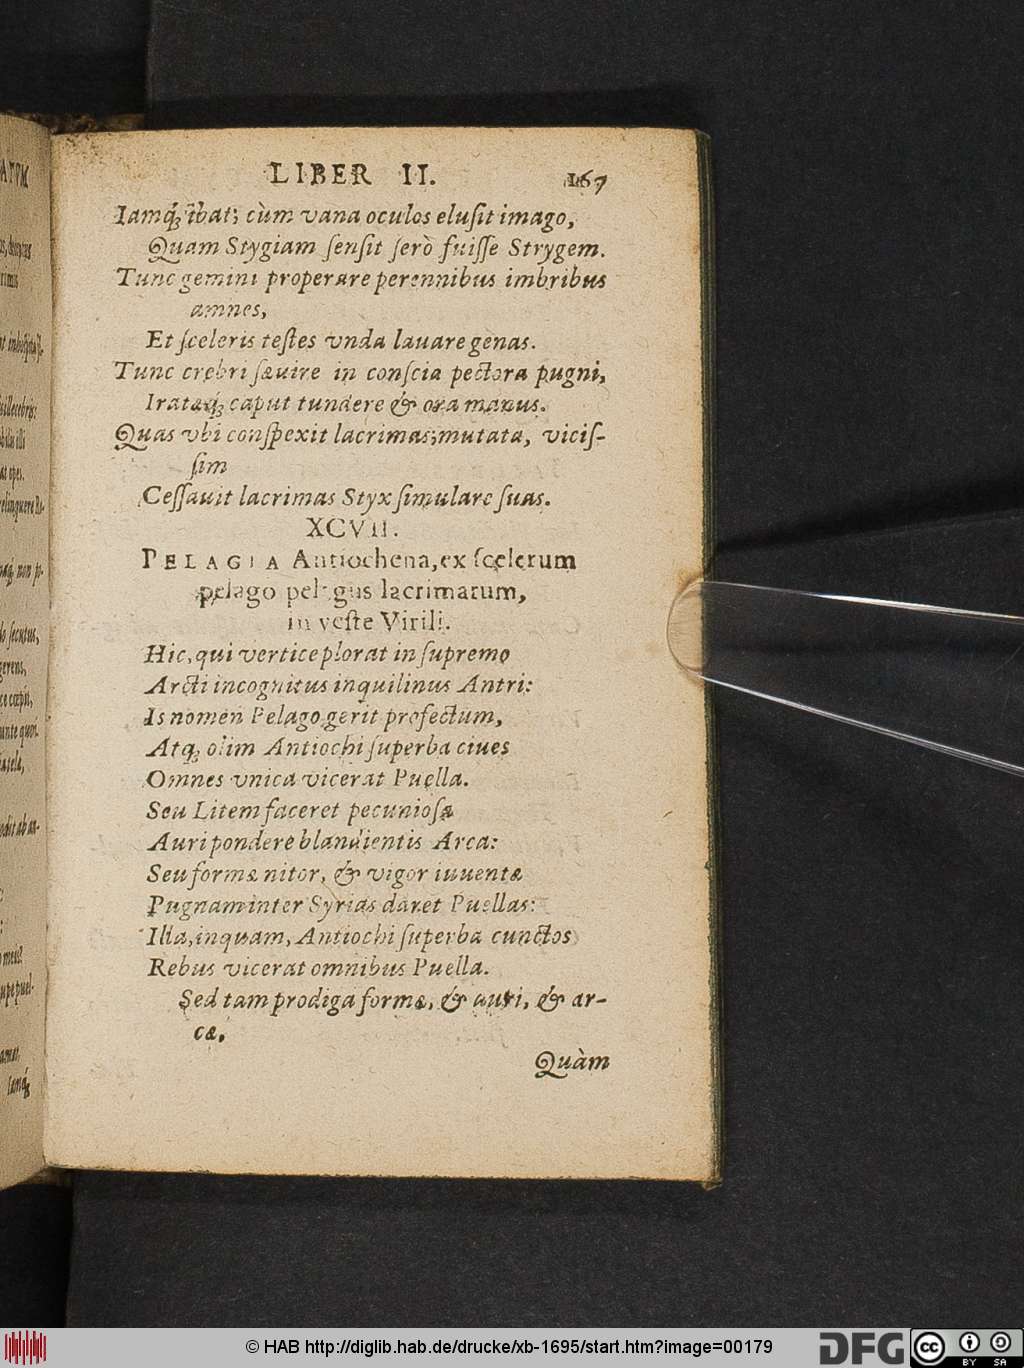 LIBER II. 167
Iamq́; ibat; cùm vana oculos elusit imago,
Quam Stygiam sensit serò fuisse Strygem.
Tunc gemini properare perennibus imbribus
amnes,
Et sceleris testes vnda lauare genas.
Tunc crebri sæuire in conscia pectora pugni,
Iratæq́; caput tundere & ora manus.
Quas vbi conspexit lacrimas; mutata, vicis-
sim
Cessauit lacrimas Styx simulare suas.
XCVII.
PELAGIA Antiochena, ex scelerum
pelago pelagus lacrimarum,
in veste Virili.
Hic, qui vertice plorat in supremo
Arcti incognitus inquilinus Antri:
Is nomen Pelago gerit profectum,
Atq; olim Antiochi superba ciues
Omnes vnica vicerat Puella.
Seu Litem faceret pecuniosæ
Auri pondere blandientis Arca:
Seu formæ nitor, & vigor iuuentæ
Pugnam inter Syrias daret Puellas:
Illa, inquam, Antiochi superba cunctos
Rebus vicerat omnibus Puella.
Sed tam prodiga formæ, & auri, & ar-
cæ,
Quàm
© HAB http://diglib.hab.de/drucke/xb-1695/start.htm?image=00179
DFG
cc BY SA